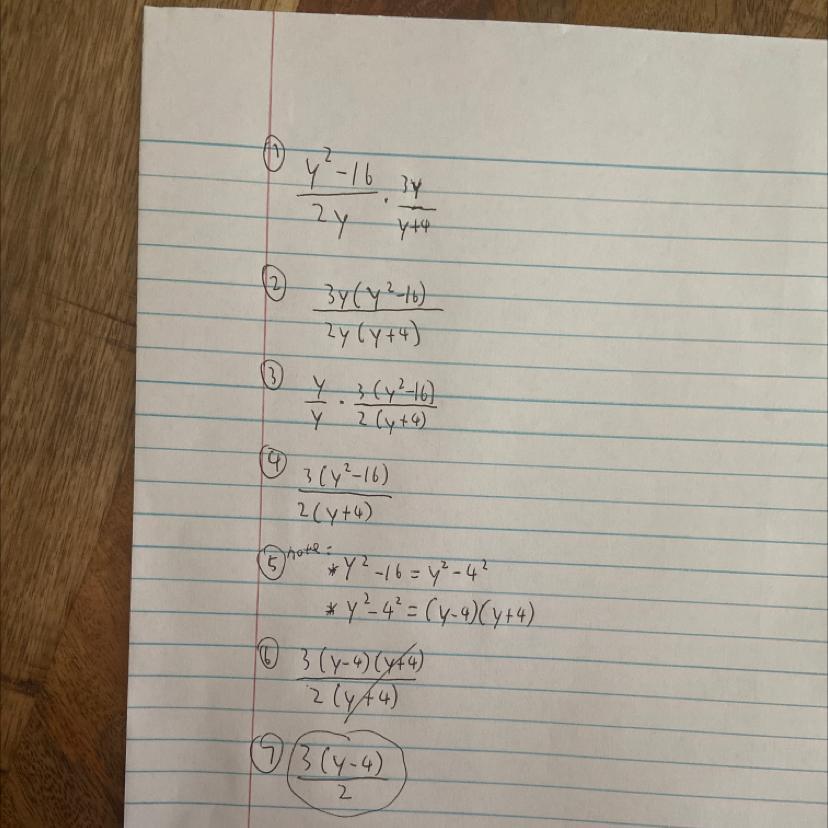 ① y²-16/2y · 3y/y+4
② 3y(y²-16)/2y(y+4)
③ y/y · 3(y²-16)/2(y+4)
④ 3(y²-16)/2(y+4)
⑤ note: * y²-16 = y²-4²
* y²-4² = (y-4)(y+4)
⑥ 3(y-4)(y+4)/2(y+4)
⑦ 3(y-4)/2